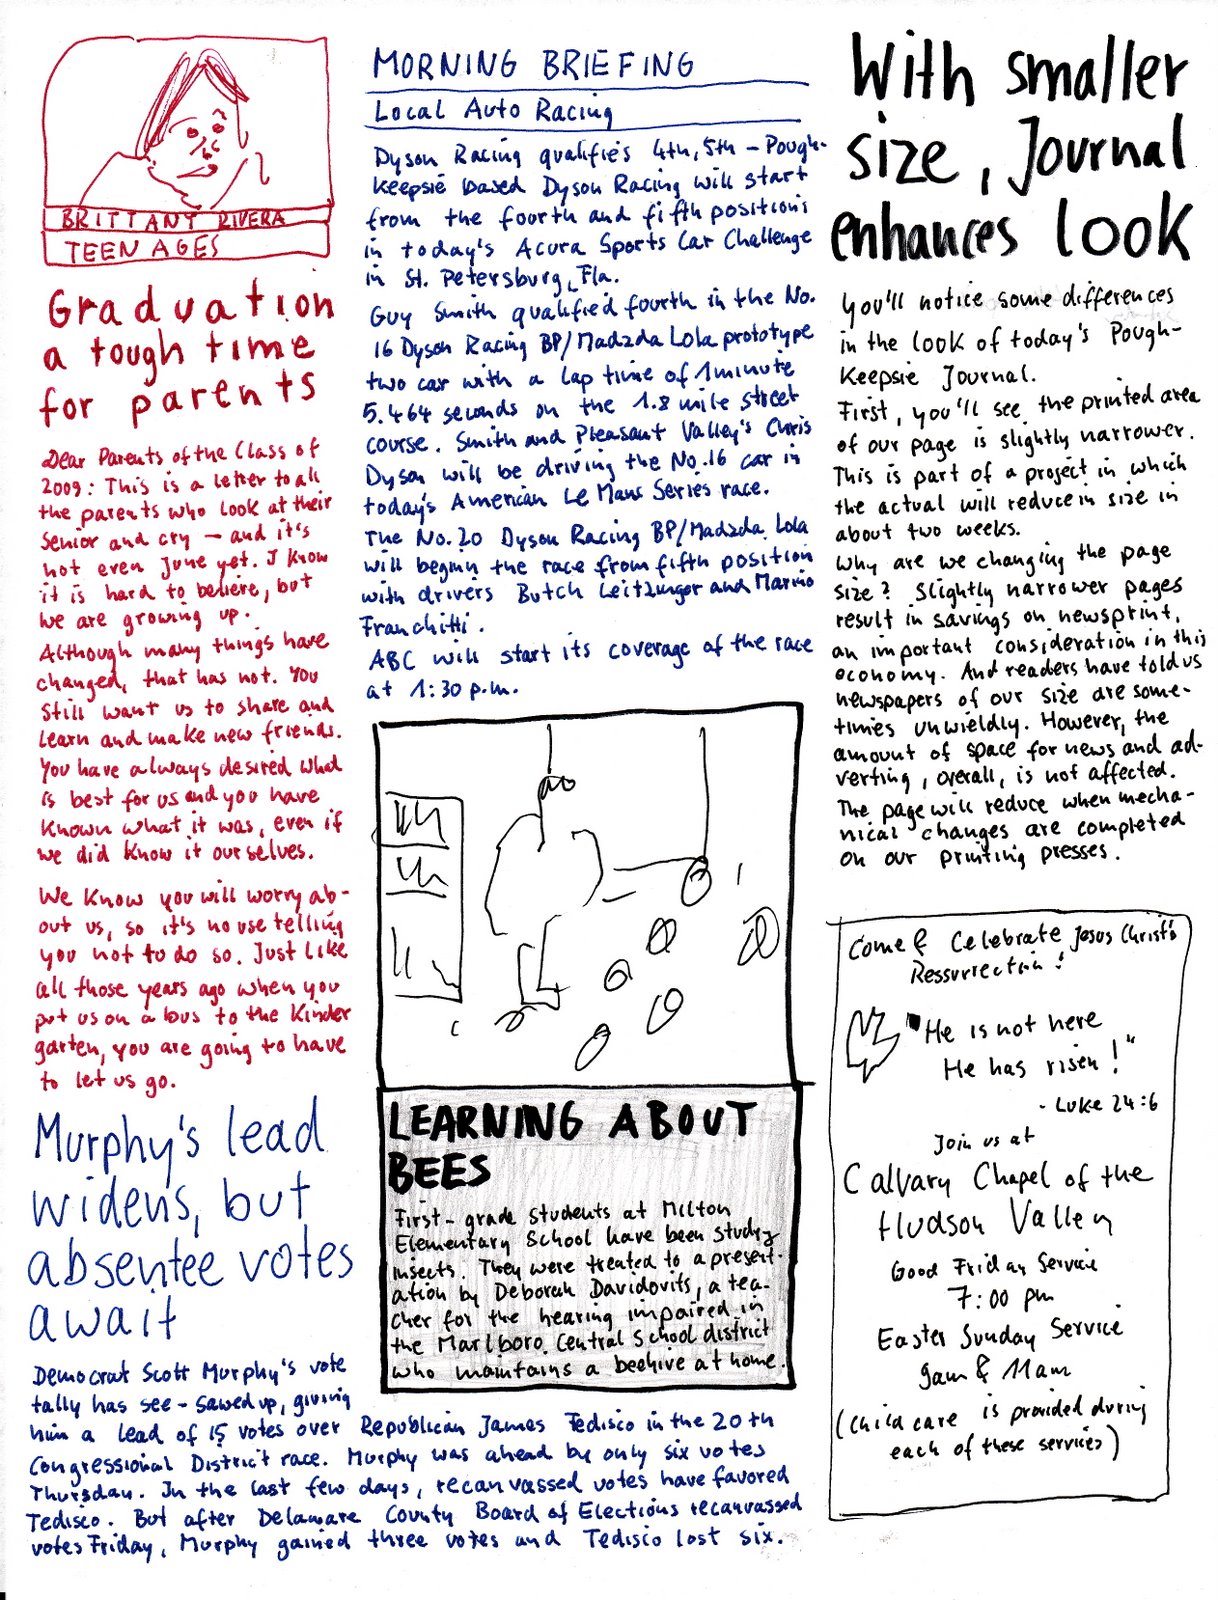 BRITTANT RIVERA
TEEN AGES
Graduation
a tough time
for parents
Dear Parents of the Class of
2009: This is a letter to all
the parents who look at their
Senior and cry — and it's
not even June yet. I know
it is hard to believe, but
we are growing up.
Although many things have
changed, that has not. You
still want us to share and
learn and make new friends.
You have always desired what
is best for us and you have
known what it was, even if
we did know it ourselves.
We know you will worry ab-
out us, so it's no use telling
you not to do so. Just like
all those years ago when you
put us on a bus to the Kinder
garten, you are going to have
to let us go.
Murphy's lead
widens, but
absentee votes
await
Democrat Scott Murphy's vote
tally has see-sawed up, giving
him a lead of 15 votes over Republican James Tedisco in the 20th
Congressional District race. Murphy was ahead by only six votes
Thursday. In the last few days, recanvassed votes have favored
Tedisco. But after Delaware County Board of Elections recanvassed
votes Friday, Murphy gained three votes and Tedisco lost six.
MORNING BRIEFING
Local Auto Racing
Dyson Racing qualifies 4th, 5th – Pough-
keepsie based Dyson Racing will start
from the fourth and fifth positions
in today's Acura Sports Car Challenge
in St. Petersburg, Fla.
Guy Smith qualified fourth in the No.
16 Dyson Racing BP/Madzda Lola prototype
two car with a lap time of 1 minute
5.464 seconds on the 1.8 mile street
course. Smith and Pleasant Valley's Chris
Dyson will be driving the No.16 car in
today's American Le Mans Series race.
The No.20 Dyson Racing BP/Madzda Lola
will begin the race from fifth position
with drivers Butch Leitzinger and Marino
Franchitti.
ABC will start its coverage of the race
at 1:30 p.m.
LEARNING ABOUT
BEES
First-grade students at Milton
Elementary School have been studyz
insects. They were treated to a present-
ation by Deborah Davidovits, a tea-
cher for the hearing impaired in
the Marlboro Central School district
who maintains a beehive at home.
With smaller
size, Journal
enhances look
You'll notice some differences
in the look of today's Pough-
keepsie Journal.
First, you'll see the printed area
of our page is slightly narrower.
This is part of a project in which
the actual will reduce in size in
about two weeks.
Why are we changing the page
size? Slightly narrower pages
result in savings on newsprint,
an important consideration in this
economy. And readers have told us
newspapers of our size are some-
times unwieldly. However, the
amount of space for news and ad-
verting, overall, is not affected.
The page will reduce when mecha-
nical changes are completed
on our printing presses.
Come & Celebrate Jesus Christ's
Ressurrection!
"He is not here
He has risen!"
- Luke 24:6
Join us at
Calvary Chapel of the
Hudson Valley
Good Friday Service
7:00 pm
Easter Sunday Service
9am & 11am
(Child care is provided during
each of these services)